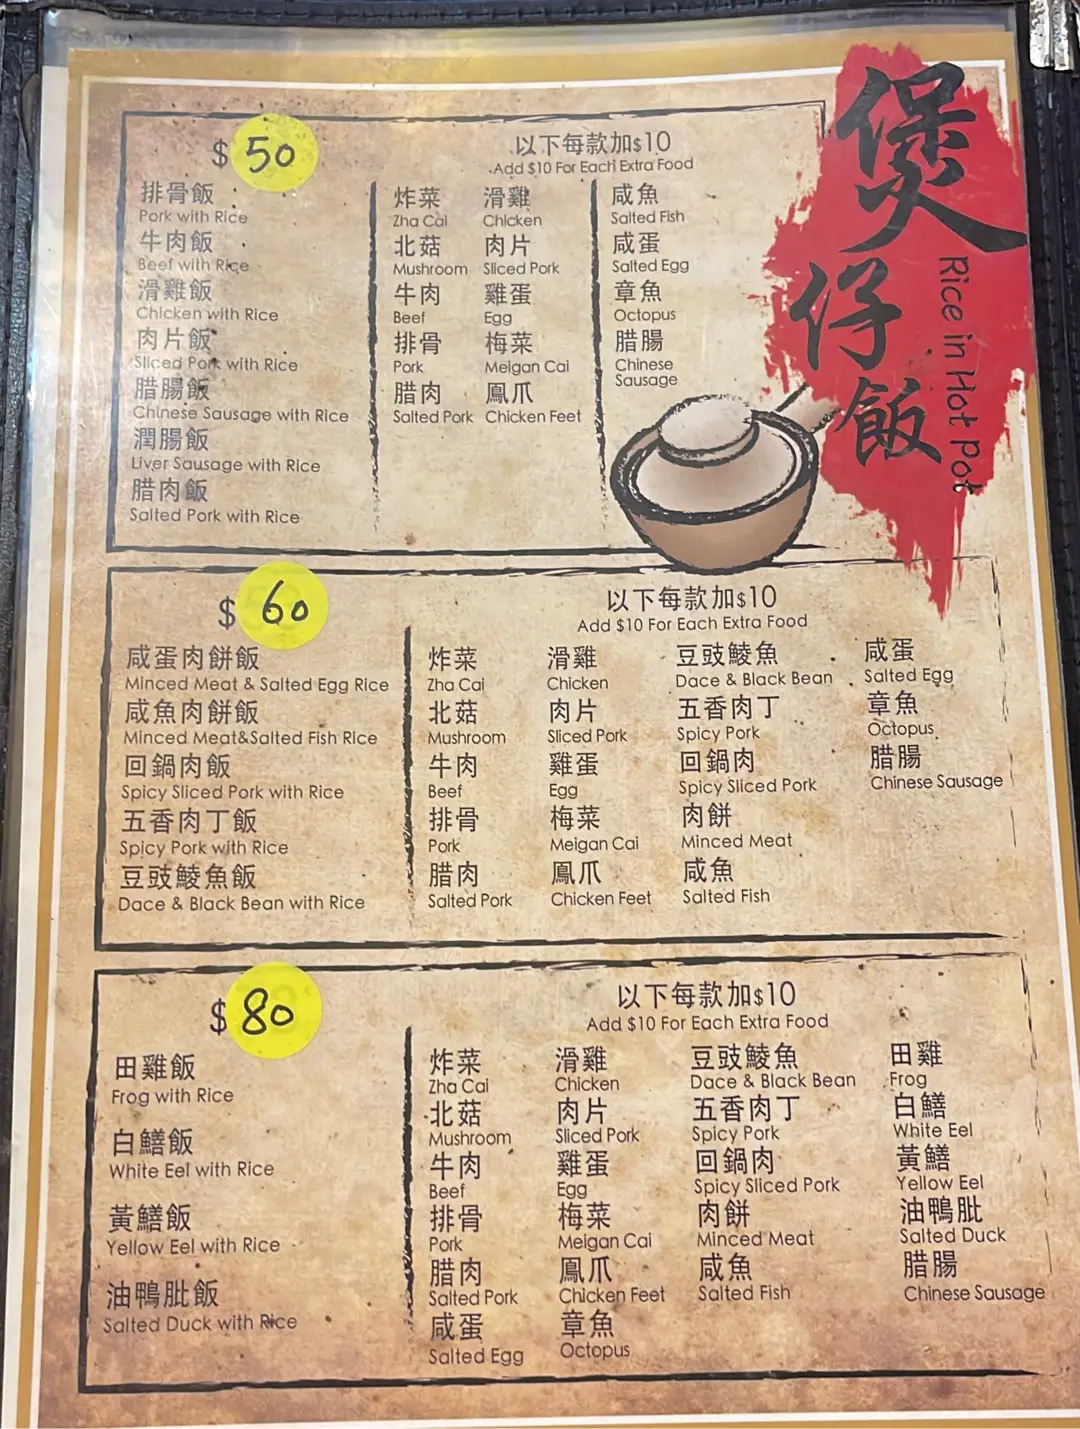 煲仔飯
Rice in Hot Pot
$50
排骨飯
Pork with Rice
牛肉飯
Beef with Rice
滑雞飯
Chicken with Rice
肉片飯
Sliced Pork with Rice
腊腸飯
Chinese Sausage with Rice
潤腸飯
Liver Sausage with Rice
腊肉飯
Salted Pork with Rice
以下每款加$10
Add $10 For Each Extra Food
炸菜
Zha Cai
北菇
Mushroom
牛肉
Beef
排骨
Pork
腊肉
Salted Pork
滑雞
Chicken
肉片
Sliced Pork
雞蛋
Egg
梅菜
Meigan Cai
鳳爪
Chicken Feet
咸魚
Salted Fish
咸蛋
Salted Egg
章魚
Octopus
腊腸
Chinese
Sausage
$60
咸蛋肉餅飯
Minced Meat & Salted Egg Rice
咸魚肉餅飯
Minced Meat&Salted Fish Rice
回鍋肉飯
Spicy Sliced Pork with Rice
五香肉丁飯
Spicy Pork with Rice
豆豉鯪魚飯
Dace & Black Bean with Rice
以下每款加$10
Add $10 For Each Extra Food
炸菜
Zha Cai
北菇
Mushroom
牛肉
Beef
排骨
Pork
腊肉
Salted Pork
滑雞
Chicken
肉片
Sliced Pork
雞蛋
Egg
梅菜
Meigan Cai
鳳爪
Chicken Feet
豆豉鯪魚
Dace & Black Bean
五香肉丁
Spicy Pork
回鍋肉
Spicy Sliced Pork
肉餅
Minced Meat
咸魚
Salted Fish
咸蛋
Salted Egg
章魚
Octopus
腊腸
Chinese Sausage
$80
田雞飯
Frog with Rice
白鱔飯
White Eel with Rice
黃鱔飯
Yellow Eel with Rice
油鴨肶飯
Salted Duck with Rice
以下每款加$10
Add $10 For Each Extra Food
炸菜
Zha Cai
北菇
Mushroom
牛肉
Beef
排骨
Pork
腊肉
Salted Pork
咸蛋
Salted Egg
滑雞
Chicken
肉片
Sliced Pork
雞蛋
Egg
梅菜
Meigan Cai
鳳爪
Chicken Feet
章魚
Octopus
豆豉鯪魚
Dace & Black Bean
五香肉丁
Spicy Pork
回鍋肉
Spicy Sliced Pork
肉餅
Minced Meat
咸魚
Salted Fish
田雞
Frog
白鱔
White Eel
黃鱔
Yellow Eel
油鴨肶
Salted Duck
腊腸
Chinese Sausage